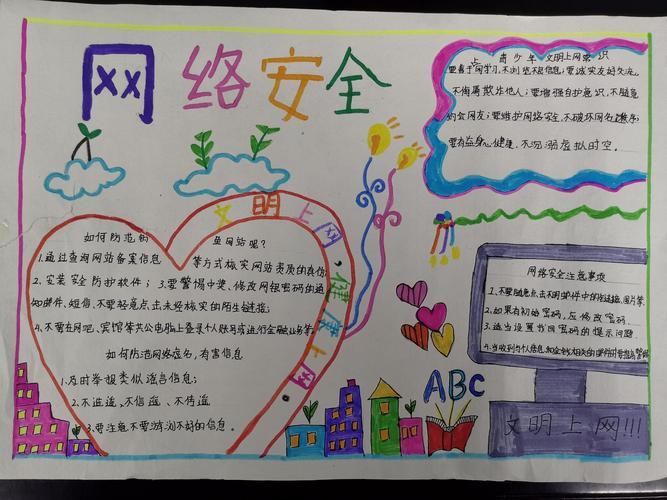 网络安全
青少年文明上网常识
要善于网学习,不浏览不良信息;要诚实友好交流,
不侮辱欺诈他人;要增强自护意识,不随意
约会网友;要维护网络安全,不破坏网络秩序;
要有益身心健康,不沉溺虚拟时空。
文明上网,健康上网
如何防范钓鱼网站呢?
1.通过查询网站备案信息等方式核实网站资质的真伪
2.安装安全防护软件;3.要警惕中奖、修改网银密码的通
知邮件、短信,不要轻意点击未经核实的陌生链接;
4.不要在网吧、宾馆等公公电脑上登录个人账号或进行金融业务等。
如何防范网络虚名,有害信息
1.及时举报类似谣言信息;
2.不造谣、不信谣、不传谣
3.要注意不要浏览不好的信息。
网络安全注意事项
1.不要随意点击不明邮件中的链接、图片等
2.如果有初始密码,应修改密码.
3.适当设置书回密码的提示问题.
ABC
文明上网!!!